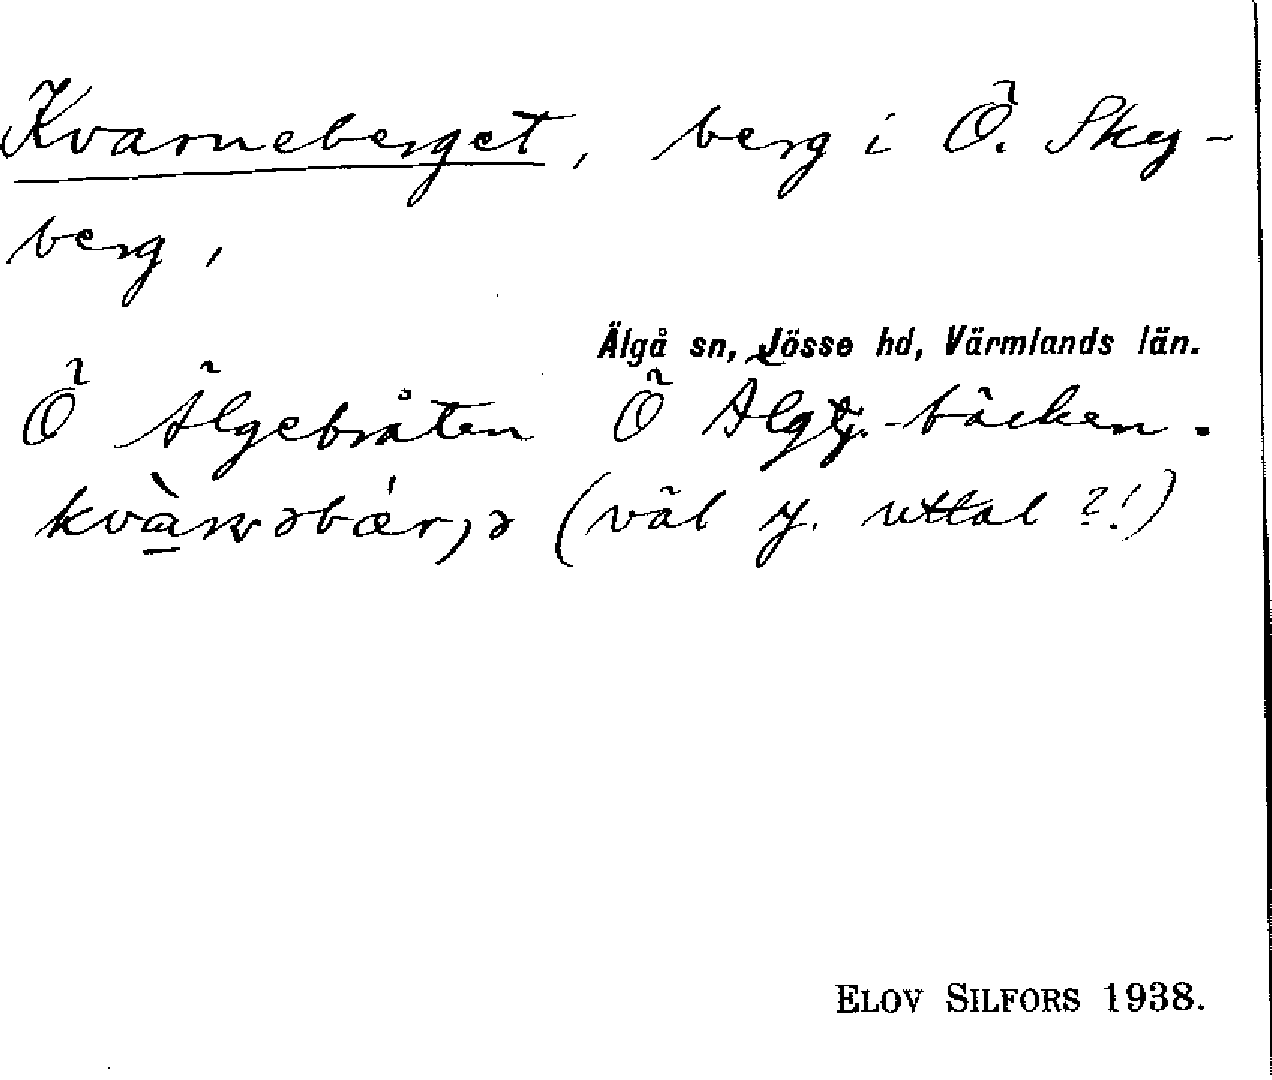 Kvarneberget, berg i Ö. Skey-
berg,
Älgå sn, Jösse hd, Värmlands län.
Ö Älgebråten Ö Älgtj.-bäcken.
(väl y. uttal ?!)
ELOV SILFORS 1938.